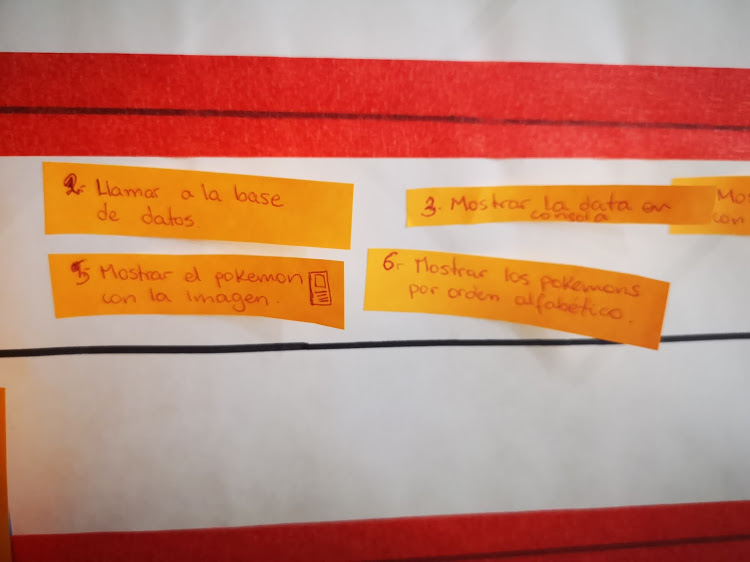 2- Llamar a la base
de datos
3. Mostrar la data en
consola
Mos
con
5- Mostrar el pokemon
con la imagen.
6- Mostrar los pokemons
por orden alfabético.